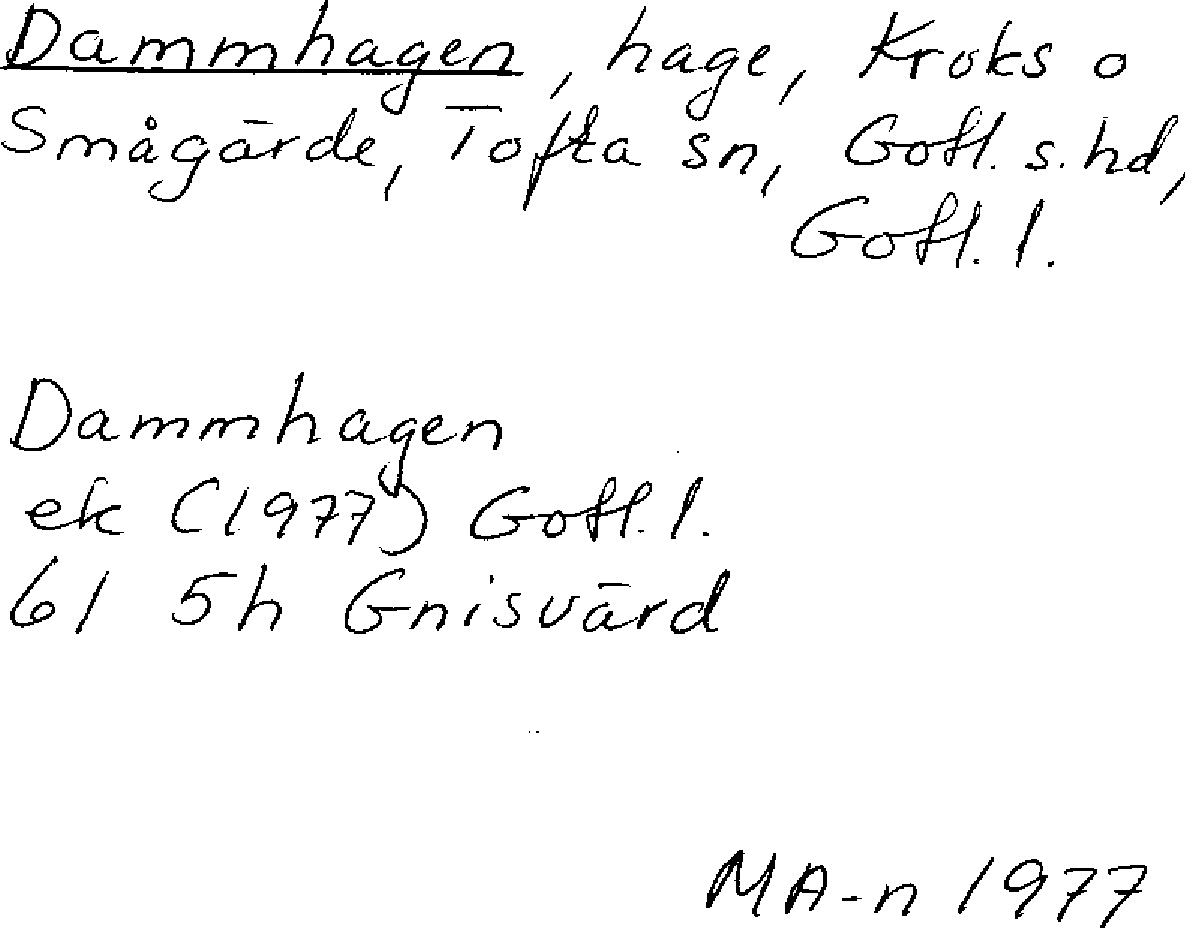 Dammhagen, hage, Kroks o
Smågärde, Tofta sn, Gotl. s. hd,
Gotl. l.
Dammhagen
ek (1977) Gotl. l.
6I 5h Gnisvärd
MA-n 1977